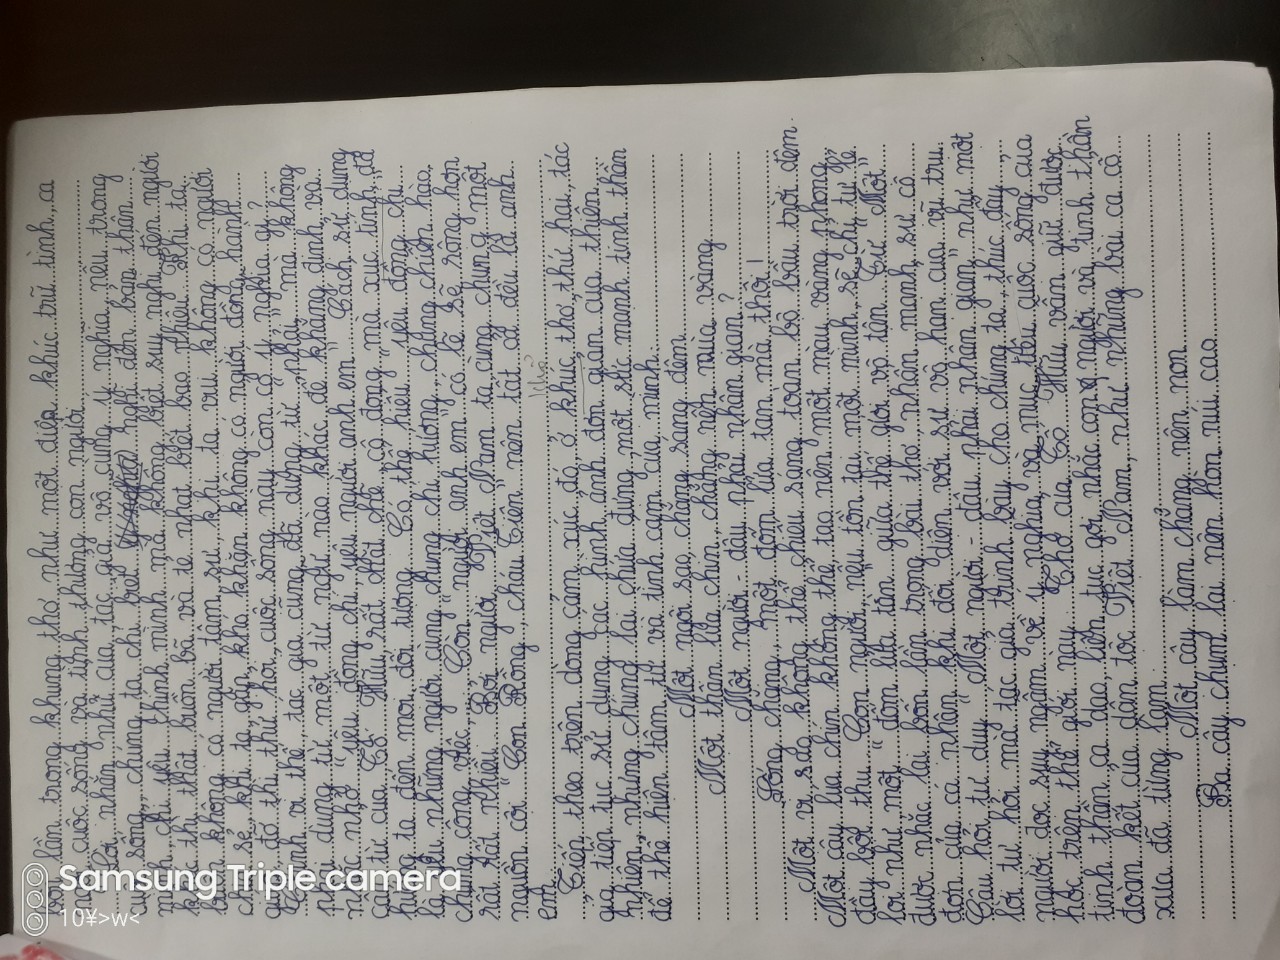 ba lần trong khung thơ như một điệp khúc trữ tình, ca
ngợi cuộc sống và tình thương con người.
Lời nhắn nhủ của tác giả vô cùng ý nghĩa, nếu trong
cuộc sống, chúng ta chỉ biết nghĩ đến bản thân
mình, chỉ yêu chính mình mà không biết suy nghĩ đến người
khác thì thật buồn bã và tẻ nhạt biết bao nhiêu. Khi ta
buồn không có người tâm sự, khi ta vui không có người
chia sẻ, khi ta gặp khó khăn không có người đồng hành
quả đó thì thử hỏi, cuộc sống này còn có ý nghĩa gì?
Chính vì thế, tác giả cũng đã dùng từ "phải" mà không
phải dùng từ một từ ngữ nào khác để khẳng định và
nhắc nhở "yêu đồng chí, yêu người anh em". Cách sử dụng
câu từ của Tố Hữu rất chặt chẽ cô đọng mà xúc tính, đã
hướng ta đến mọi đối tượng. Có thể hiểu "yêu đồng chí"
là yêu những người cùng chung chí hướng, chẳng chiến hào,
chung công việc. Còn "người anh em" có lẽ sẽ rộng hơn
rất rất nhiều. Bởi người Việt Nam ta cùng chung một
nguồn cội "Con Rồng, cháu Tiên" nên tất cả đều là anh
em.
Tiếp theo trên dòng cảm xúc đó, ở khúc thơ thứ hai, tác
giả tiếp tục sử dụng các hình ảnh đơn giản của thiên
nhiên, nhưng chung lại chứa đựng một sức mạnh tinh thần
để thể hiện tâm tư và tình cảm của mình.
Một ngôi sao, chẳng sáng đêm
Một thân lúa chín, chẳng nên mùa vàng
Một người - đâu phải nhân gian?
Sống chăng, một đốm lửa tàn mà thôi!
Một vì sao không thể chiếu sáng toàn bộ bầu trời đêm.
Một cây lúa chín không thể tạo nên một màu vàng phong
đầy bột thu. Con người, nếu tồn tại một mình, sẽ chỉ tự kể
lỗi như một "đốm lửa tàn" giữa thế giới vô tận. Từ "Một"
được nhắc lại bốn lần trong bài thơ nhấn mạnh sự cô
đơn của cá nhân khi đối diện với sự vô hạn của vũ trụ.
Câu hỏi tư duy "Một người - đâu phải nhân gian" như một
lời tự hỏi mà tác giả trình bày cho chúng ta, thúc đẩy
người đọc suy ngẫm về ý nghĩa và mục tiêu cuộc sống của
học trên thế giới này. Thơ của Tố Hữu vẫn giữ được
tinh thần ca dao, liên tục gợi nhắc con người về tinh thần
đoàn kết của dân tộc Việt Nam, như những bài ca cổ
xưa đã từng làm
Một cây làm chẳng nên non
Ba cây chụm lại nên hòn núi cao
Samsung Triple camera
10¥>w<